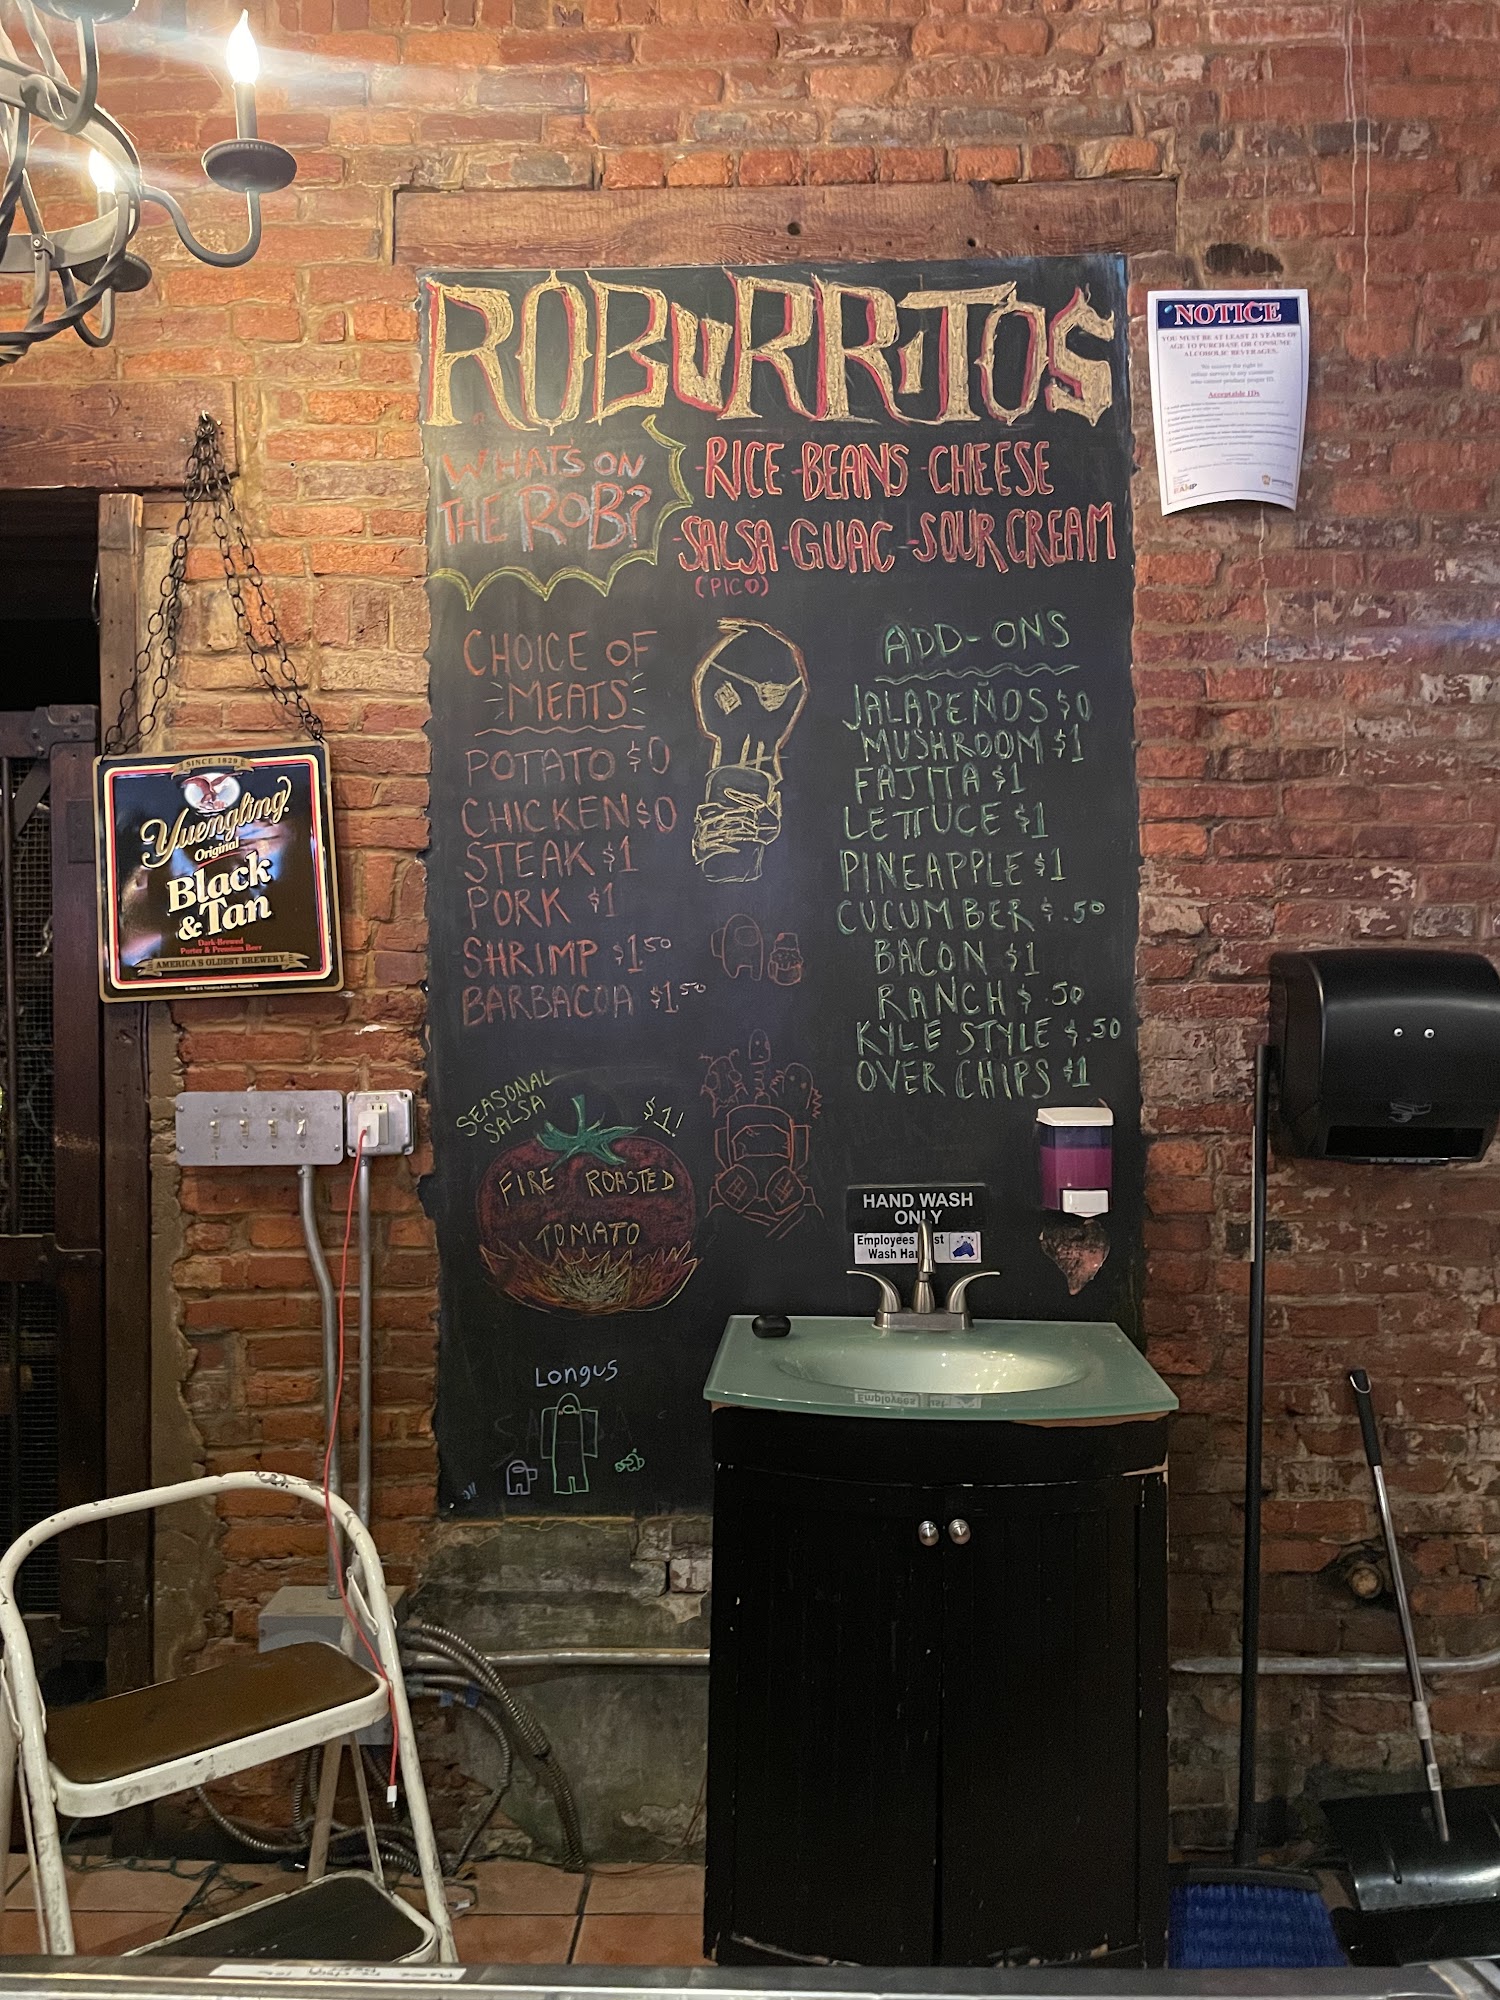 ROBURRITOS
WHATS ON
THE ROB?
-RICE -BEANS -CHEESE
-SALSA -GUAC -SOUR CREAM
(PICO)
CHOICE OF
MEATS
POTATO $0
CHICKEN $0
STEAK $1
PORK $1
SHRIMP $1.50
BARBACOA $1.50
ADD-ONS
JALAPEÑOS $0
MUSHROOM $1
FAJITA $1
LETTUCE $1
PINEAPPLE $1
CUCUMBER $.50
BACON $1
RANCH $.50
KYLE STYLE $.50
OVER CHIPS $1
SEASONAL
SALSA
$1!
FIRE ROASTED
TOMATO
Longus
NOTICE
YOU MUST BE AT LEAST 21 YEARS OF
AGE TO PURCHASE OR CONSUME
ALCOHOLIC BEVERAGES.
We reserve the right to
refuse service to any customer
who cannot produce proper ID.
Acceptable IDs
RAMP
SINCE 1829
Yuengling
Original
Black
& Tan
Dark-Brewed
Porter & Premium Beer
AMERICA'S OLDEST BREWERY
HAND WASH
ONLY
Employees
Wash